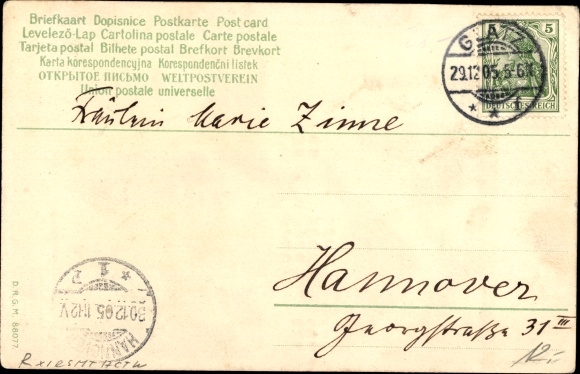 Briefkaart Dopisnice Postkarte Post card
Levelező-Lap Cartolina postale Carte postale
Tarjeta postal Bilhete postal Brefkort Brevkort
Karta korespondencyjna Korespondenční lístek
ОТКРЫТОЕ ПИСЬМО WELTPOSTVEREIN
Union postale universelle
GLATZ
29.12.05. 5-6N.
* * 1
5
DEUTSCHES REICH
Fräulein Marie Zinne
Hannover
Georgstraße 31 III
12.-
* 1 p
30.12.05. 11-12V.
HANNOVER
D.R.G.M. 88077.